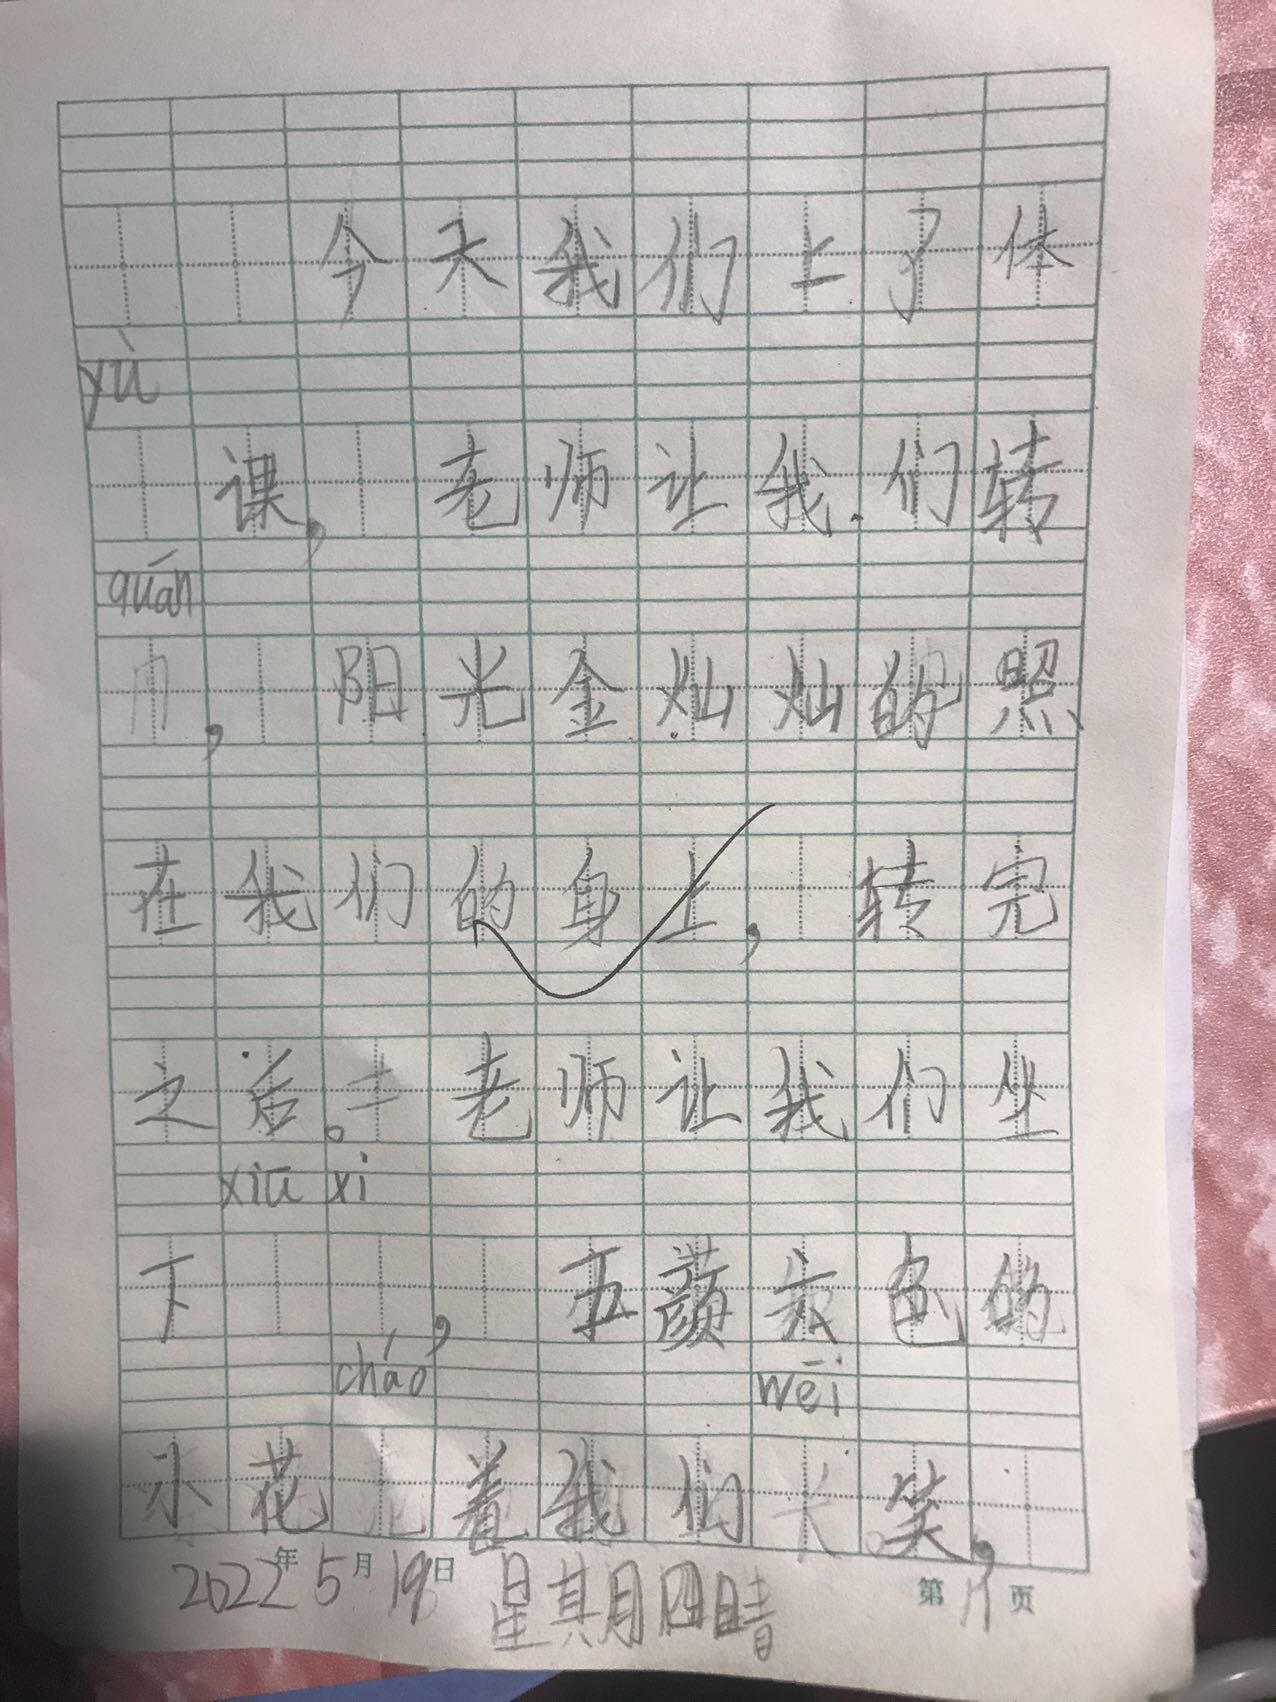 今天我们上了体
yù
课，老师让我们转
quān
，阳光金灿灿的照
在我们的身上，转完
之后。老师让我们坐
xiū xi
下，五颜六色的
cháo wēi
小花着我们笑，
2022年5月19日 星期四晴 第页